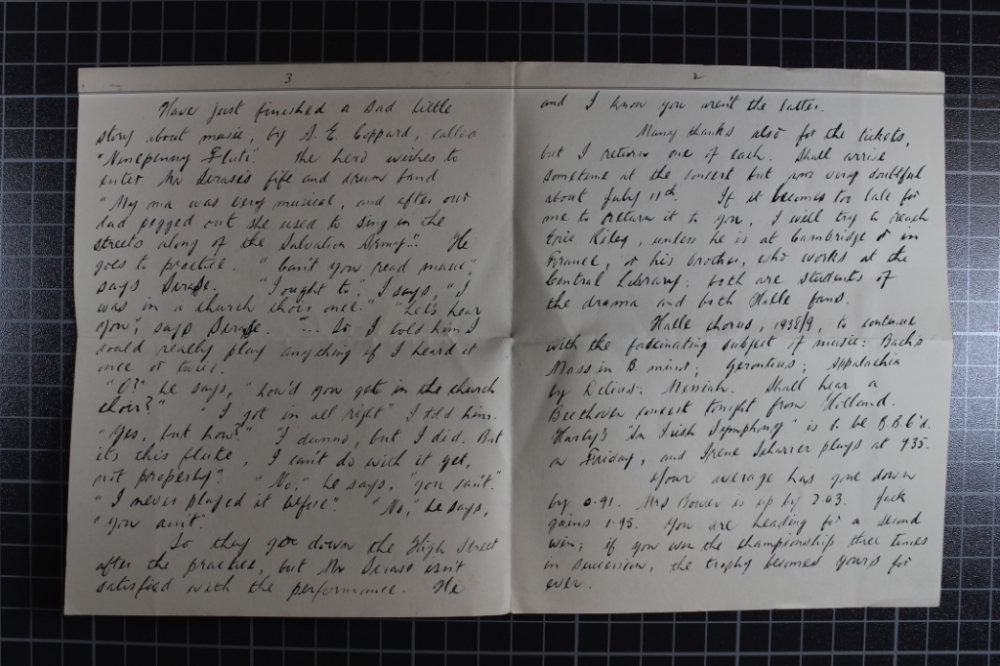 3
Have just finished a sad little
story about music, by A. E. Coppard, called
"Ninepenny Flute". The hero wishes to
enter Mr fife and drum band
"My ma was very musical, and after our
dad pegged out she used to sing in the
streets along of the Salvation Army". He
goes to practice. "Can't you read music",
says "I ought to", I says, "I
was in a church choir once." "Let's hear
you", says "... So I told him I
could really play anything if I heard it
once or twice.
"O?" he says, "how'd you get in the church
choir?" "I got in all right" I told him.
"Yes, but how?" "I dunno, but I did. But
it's this flute, I can't do with it yet,
not properly". "No," he says, "you can't."
"I never played it before". "No", he says,
"you ain't".
So they go down the High Street
after the practice, but Mr isn't
satisfied with the performance. He
2
and I know you aren't the latter.
Many thanks also for the tickets,
but I return one of each. Shall arrive
sometime at the concert but am very doubtful
about July 11th. If it becomes too late for
me to return it to you, I will try to reach
Eric Riley, unless he is at Cambridge or in
France, or his brother, who works at the
Central Library; both are students of
the drama and both Halle fans.
Halle chorus, 1938/9, to continue
with the fascinating subject of music: Bach's
Mass in B. minor; Gerontius; Appalachia
by Delius; Messiah. Shall hear a
Beethoven concert tonight from Holland.
Harty's "An Irish Symphony" is to be B.B.C'd.
on Friday, and Irene Scharrer plays at 9.35.
Your average has gone down
by 0.91. Mrs Bower is up by 2.03. Jack
gains 1.95. You are heading for a second
win; if you win the championship three times
in succession, the trophy becomes yours for
ever.